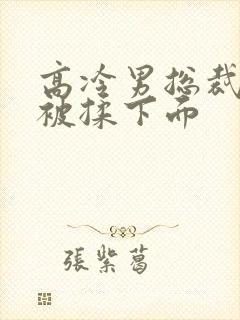 高冷男总裁
被揉下面
張紫葛